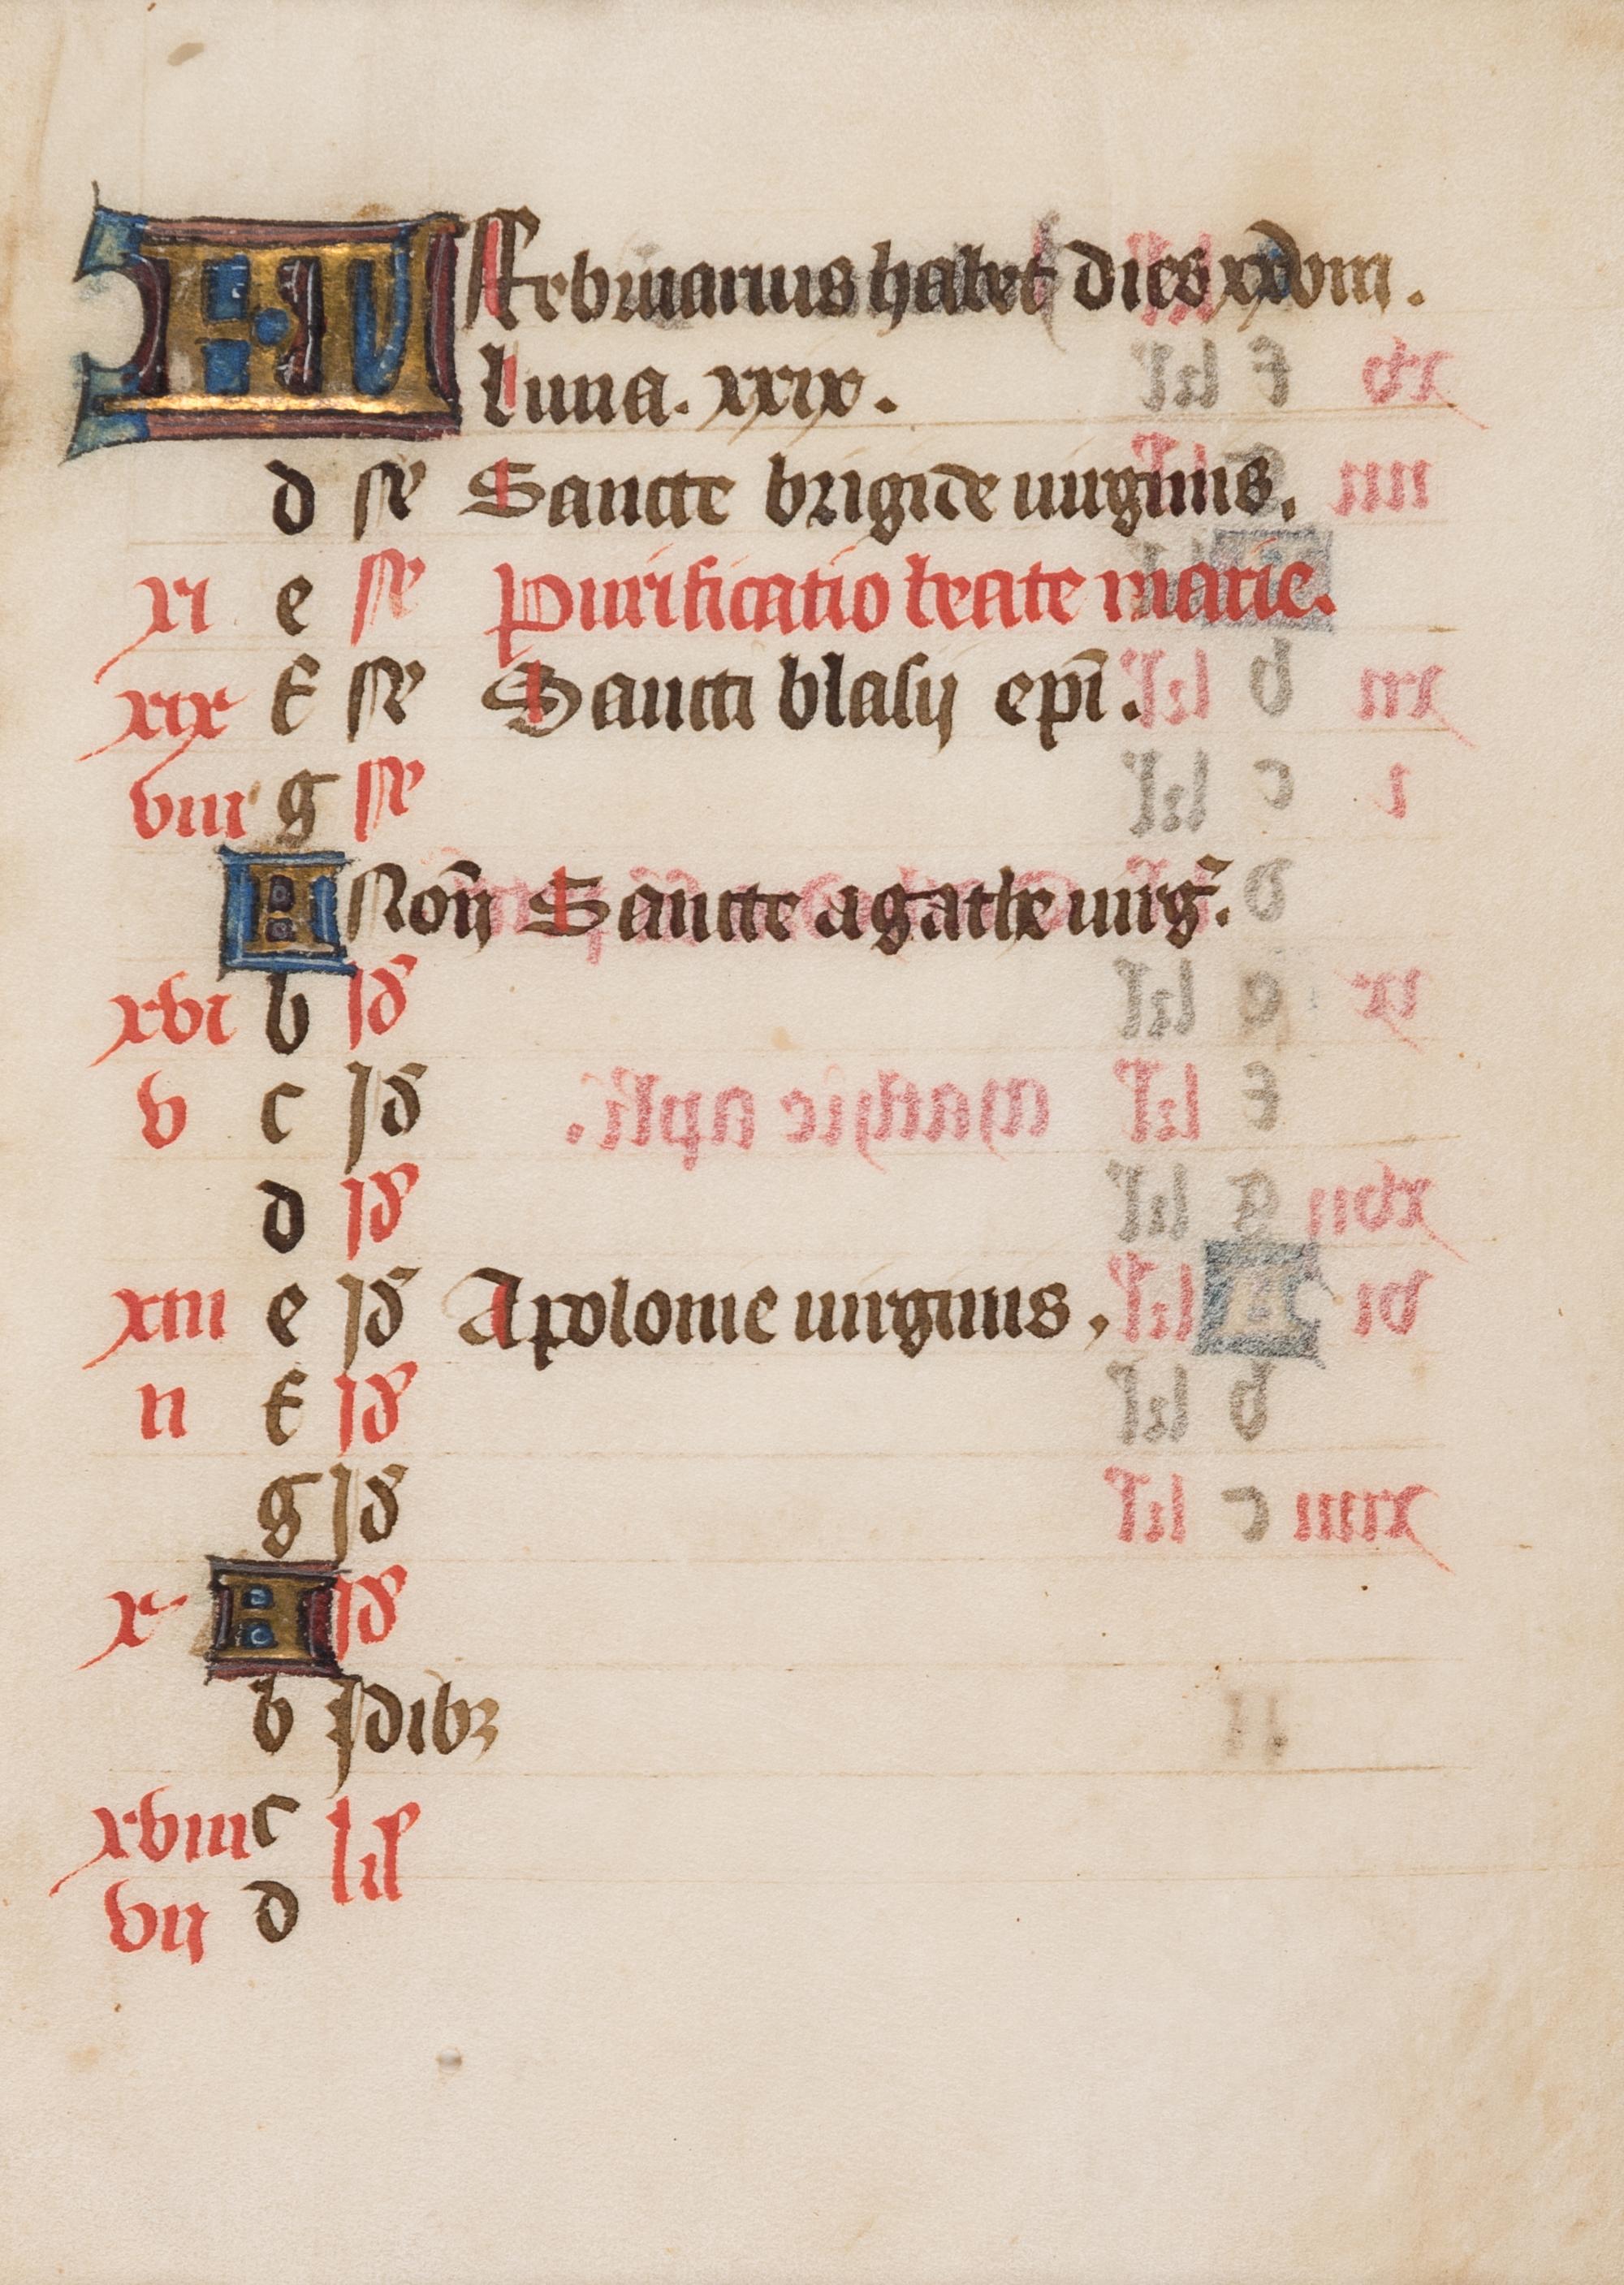 KL Februarius habet dies xxviii.
Luna. xxix.
d Sancte brigide uirginis.
xi e Purificatio beate marie.
xix f Sancti blasij epi.
viii g
A Non Sancte agathe uirg.
xvi b Id
v c Id
d Id
xiii e Id Apolonie uirginis.
ii f Id
g Id
x A Id
b Idibz
xviii c kl
vii d